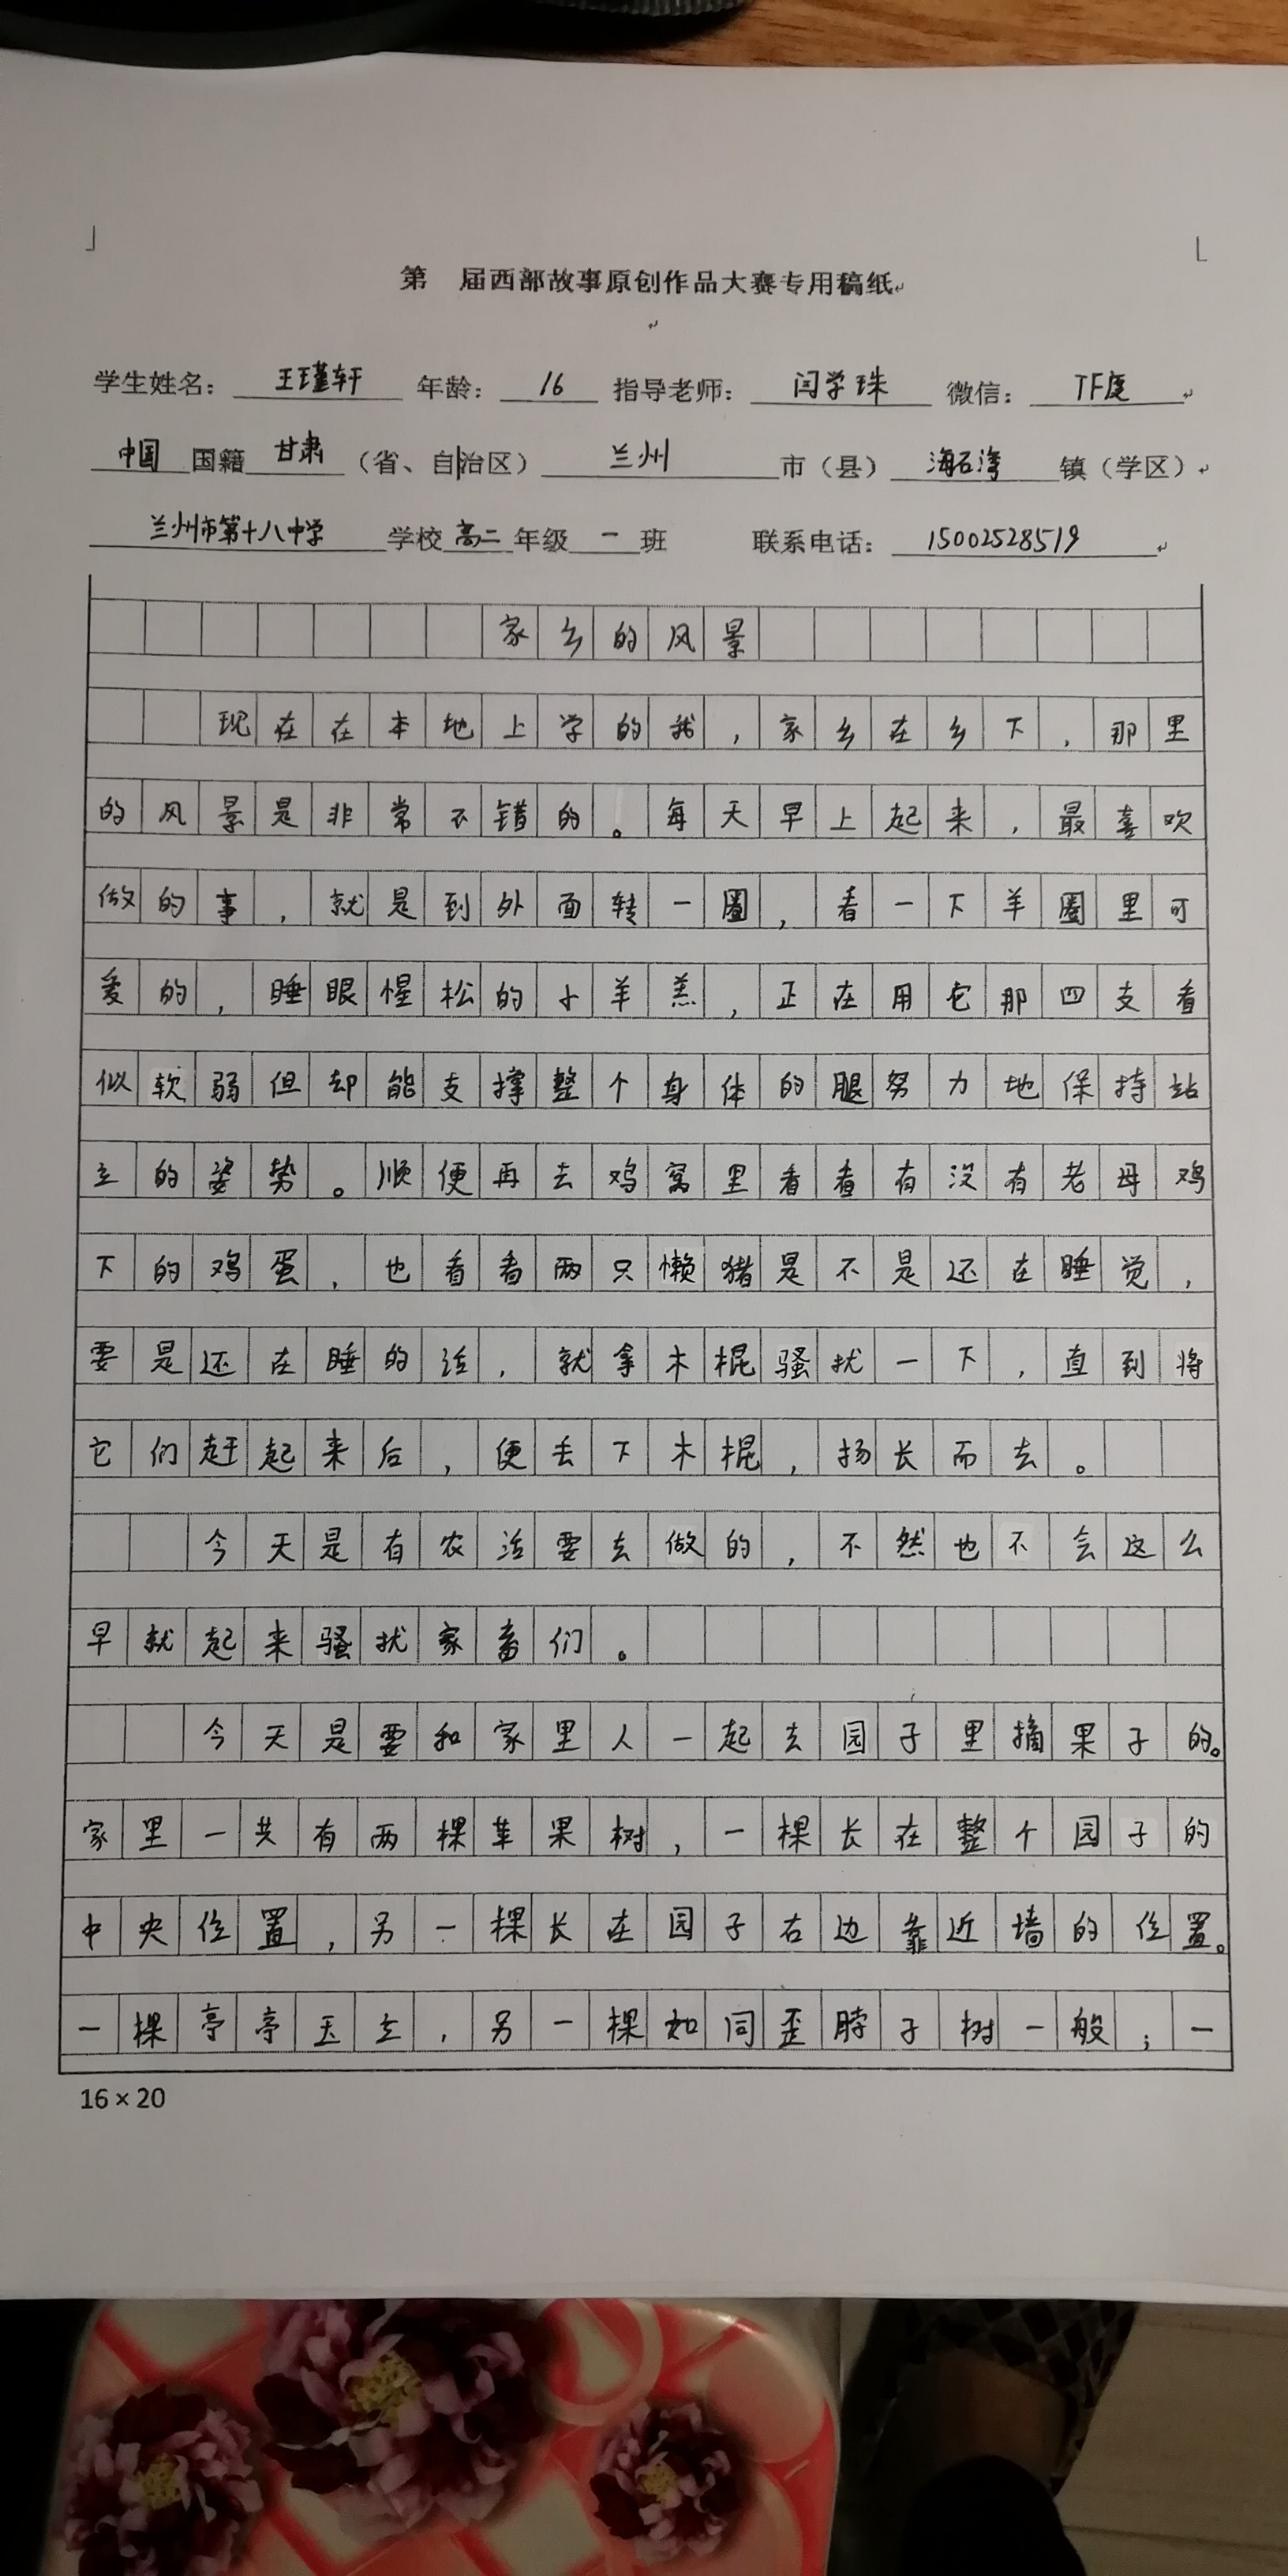 第 届西部故事原创作品大赛专用稿纸
学生姓名：王瑾轩 年龄：16 指导老师：闫学珠 微信：TF庭
中国国籍甘肃（省、自治区）兰州市（县）海石湾镇（学区）
兰州市第十八中学学校高二年级一班 联系电话：15002528519
家乡的风景
现在在本地上学的我，家乡在乡下，那里
的风景是非常不错的。每天早上起来，最喜欢
做的事，就是到外面转一圈，看一下羊圈里可
爱的，睡眼惺松的小羊羔，正在用它那四支看
似软弱但却能支撑整个身体的腿努力地保持站
立的姿势。顺便再去鸡窝里看看有没有老母鸡
下的鸡蛋，也看看两只懒猪是不是还在睡觉，
要是还在睡的话，就拿木棍骚扰一下，直到将
它们赶起来后，便丢下木棍，扬长而去。
今天是有农活要去做的，不然也不会这么
早就起来骚扰家畜们。
今天是要和家里人一起去园子里摘果子的。
家里一共有两棵苹果树，一棵长在整个园子的
中央位置，另一棵长在园子右边靠近墙的位置。
一棵亭亭玉立，另一棵如同歪脖子树一般；一
16×20